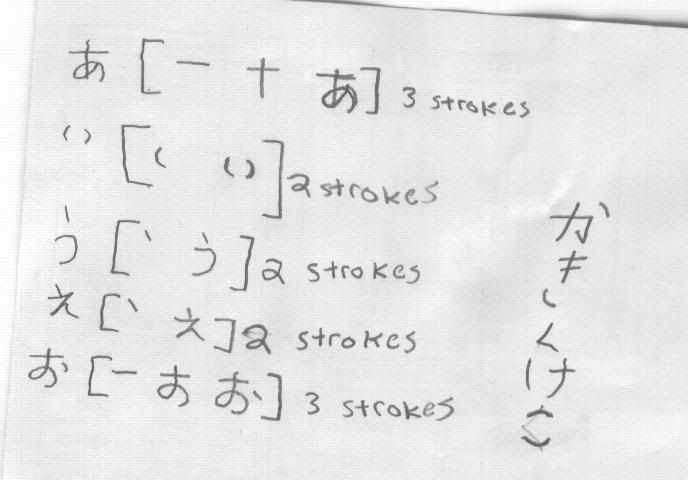 あ [一 十 あ] 3 strokes
い [ ( い] 2 strokes
う [` う] 2 strokes
え [` え] 2 strokes
お [一 お お] 3 strokes
か
き
く
け
こ